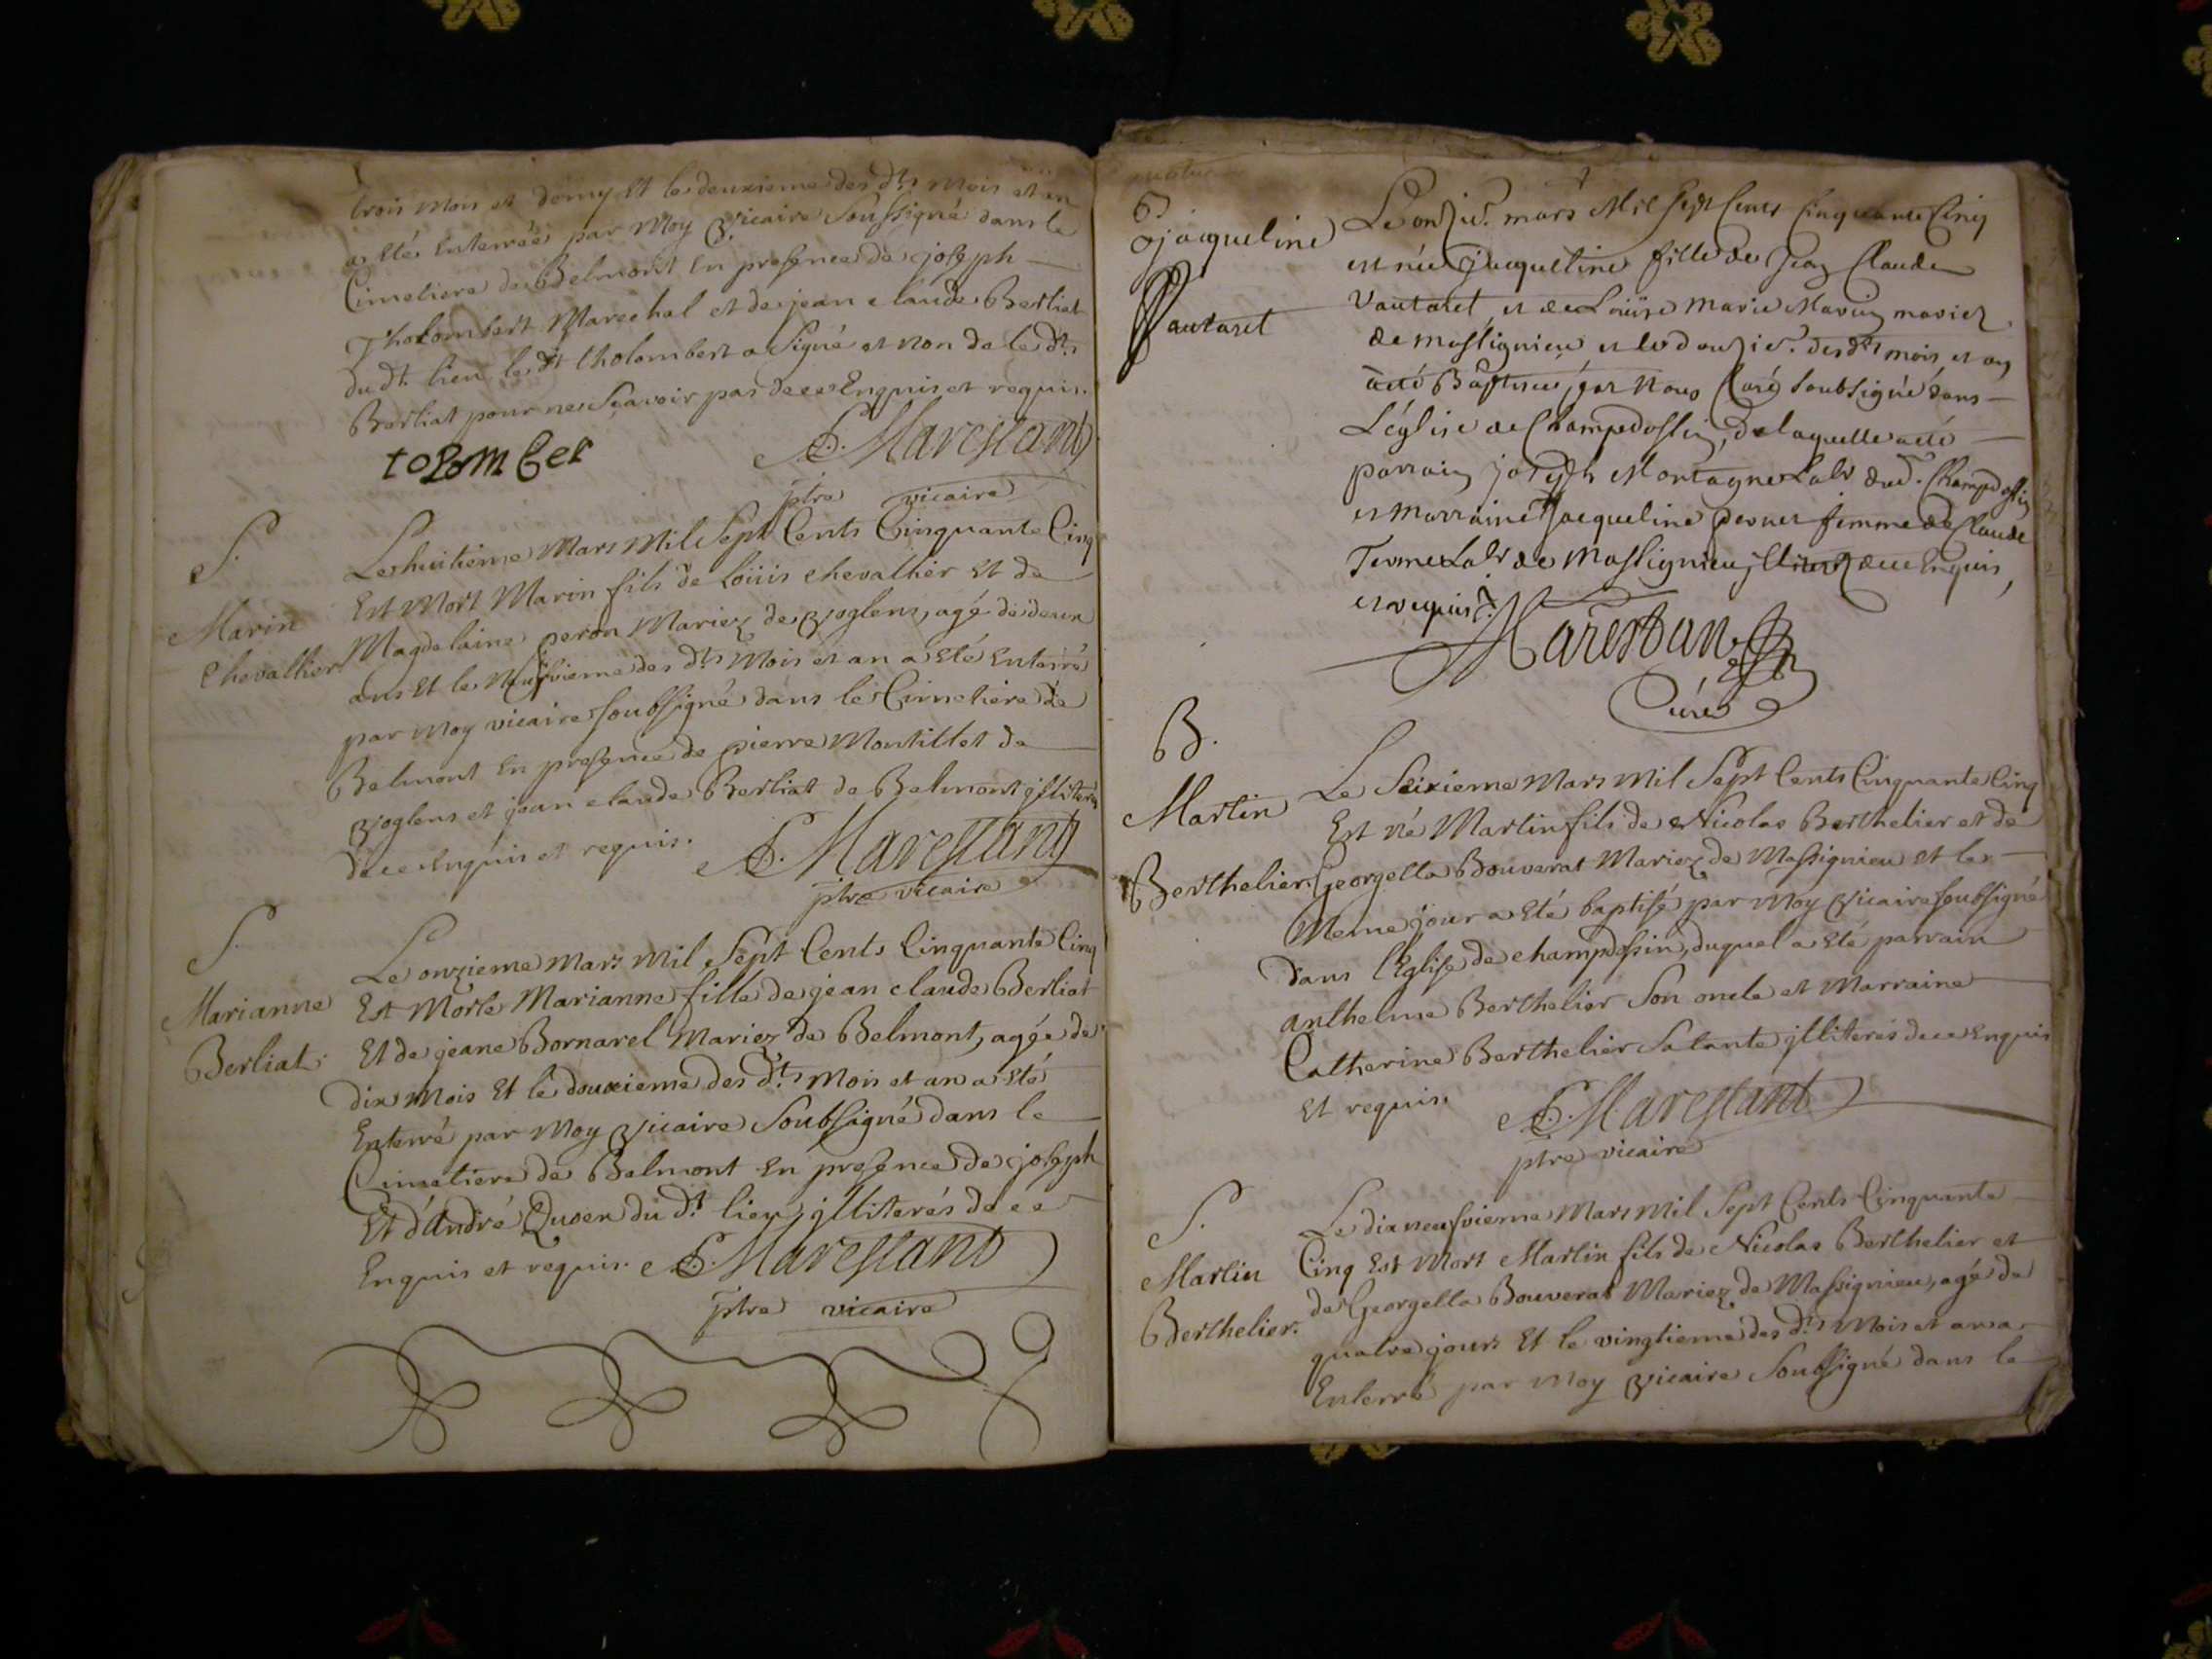 trois mois et demy Et le deuxieme des dts mois et an
a Eté Enterrée par Moy Vicaire Soussigné dans le
Cimetiere de Belmont En presence de joseph
Tholombert Marechal et de jean claude Berliat
du dt. lieu le dt tholombert a Signé et non de le dt.
Berliat pour ne Sçavoir pas de ce Enquis et requis.
tolomber
Marestant
ptre vicaire
S.
Marin
Chevallier
Le huitieme Mars Mil Sept Cents Cinquante Cinq
Est Mort Marin fils de Loüis chevallier Et de
Magdelaine peron Mariez de Voglens, agé de deux
ans Et le Neufvieme des dts Mois et an a Eté Enterré
par Moy vicaire soubsigné dans le Cimetiere de
Belmont En presence de pierre Montillet de
Voglens et jean claude Berliat de Belmont jlliterés
de ce Enquis et requis.
Marestant
ptre vicaire
S.
Marianne
Berliat.
Le onzieme Mars Mil Sept Cents Cinquante Cinq
Est Morte Marianne fille de jean claude Berliat
Et de jeane Bornarel Mariez de Belmont, agée de
dix Mois Et le douxieme des dts Mois et an a Eté
Enterré par Moy Vicaire Soubsigné dans le
Cimetiere de Belmont En presence de joseph
Et d'André du dt lieu jlliterés de ce
Enquis et requis. Marestant
ptre vicaire
B
jacqueline
Vautaret
Le onzie. mars Mil Sept Cents Cinquante Cinq
est née jacqueline fille de Jean Claude
Vautaret et de Loüise Marie Marin mariez
de massignieu et le douzie. des dts mois et an
a eté Baptisée par Nous Curé soubsigné dans
L'église de Champdossin, de laquelle a eté
parrain joseph Montagne Labr dud. Champdossin
et marraine jacqueline pernet femme de Claude
Terme Labr de Massignieu jlliterez de ce Enquis
et requis.
Marestan
Curé
B.
Martin
Berthelier.
Le Seixieme Mars Mil Sept Cents Cinquante Cinq
Est Né Martin fils de Nicolas Berthelier et de
Georgella Bouverat Mariez de Massignieu et le
Meme jour a Eté baptisé par Moy Vicaire soubsigné
dans l'Eglise de champdossin, duquel a Eté parrain
anthelme Berthelier Son oncle et Marraine
Catherine Berthelier Sa tante jlliterés de ce Enquis
Et requis.
Marestant
ptre vicaire
S.
Martin
Berthelier.
Le dix neufvieme Mars Mil Sept Cents Cinquante
Cinq Est Mort Martin fils de Nicolas Berthelier et
de Georgella Bouverat Mariez de Massignieu, agé de
quatre jours Et le vingtieme des dts Mois et an a
Enterré par Moy Vicaire Soubsigné dans le